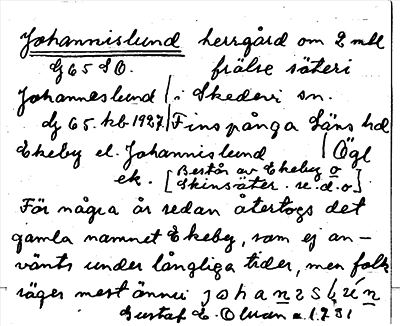 Johannislund herrgård om 2 mtl
Gf 65 SO. frälse säteri
Johanneslund i Skedevi sn.
Gf 65. kb 1927. Finspånga läns hd
Ekeby el. Johannislund Ögl
ek. [Består av Ekeby o
Skinsäter. se. d. o]
För några år sedan återtogs det
gamla namnet Ekeby, som ej an-
vänts under långliga tider, men folk
säger mest ännu johanəslún
Gustaf E. Olsson a. 1731